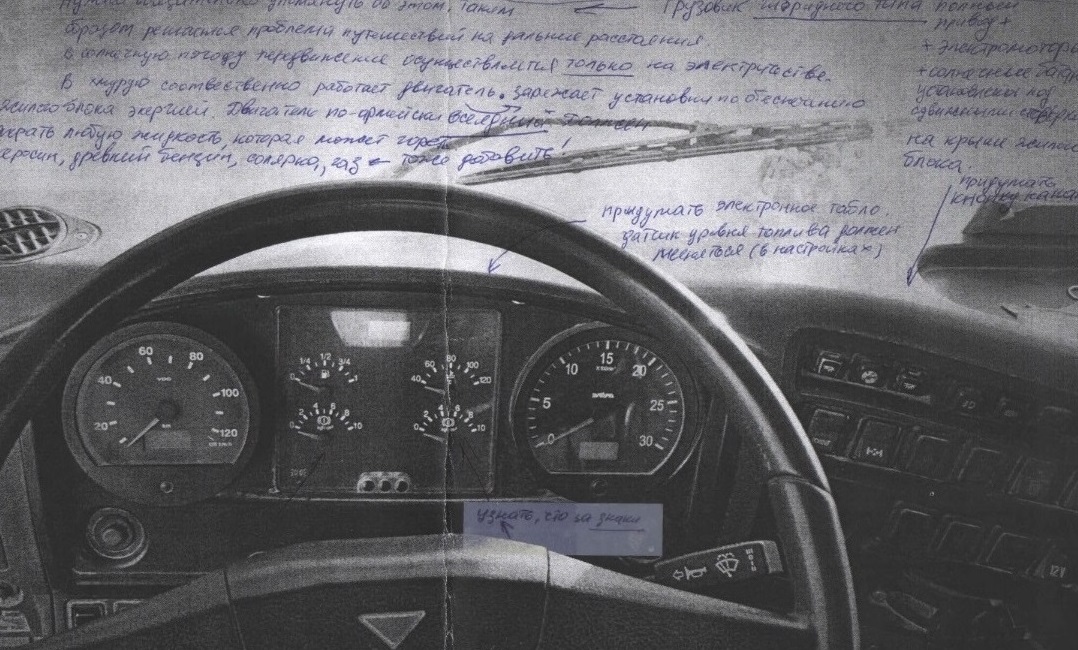 Нужно обязательно упомянуть об этом, таким
образом решается проблема путешествий на дальние расстояния.
в солнечную погоду передвижение осуществляется только на электричестве.
В хмурую соотвественно работает двигатель. Заряжает установки по обеспечению
жилого блока энергией. Двигатель по-армейски всеядный
жрать любую жидкость, которая может гореть
керосин, древний бензин, солярка, газ ← тоже добавить!
← Грузовик гибридного типа полный
привод +
+ электромоторы
+ солнечные батареи
установлены под
сдвижными
на крыше жилого
блока.
придумать
кнопку
придумать электронное табло.
датчик уровня топлива должен
меняться (в настройках)
узнать, что за знаки
20 40 60 80 100 120
VDO
km
0 1/4 1/2 3/4
40 60 80 100 120
0 2 4 6 8 10
0 2 4 6 8 10
0 5 10 15 20 25 30
12V